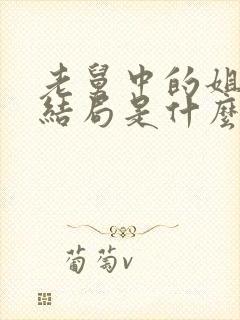 老舅中的姐
結局是什麼
葡萄v